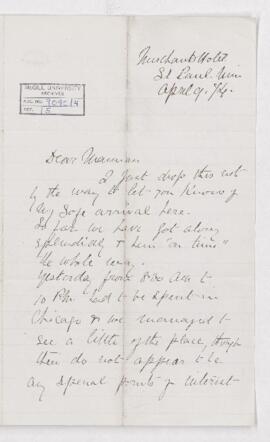 Merchants Hotel
St Paul. Min
April 9. /84.
McGILL UNIVERSITY
ARCHIVES
ACC. NO.
REF.
Dear Mamman
I just drop this note
by the way to let you know of
my safe arrival here.
So far we have got along
splendidly & been "on time"
the whole way.
Yesterday from 8.00 Am to
10 PM had to be spent in
Chicago & we managed to
see a little of the place, though
there do not appear to be
any special points of interest